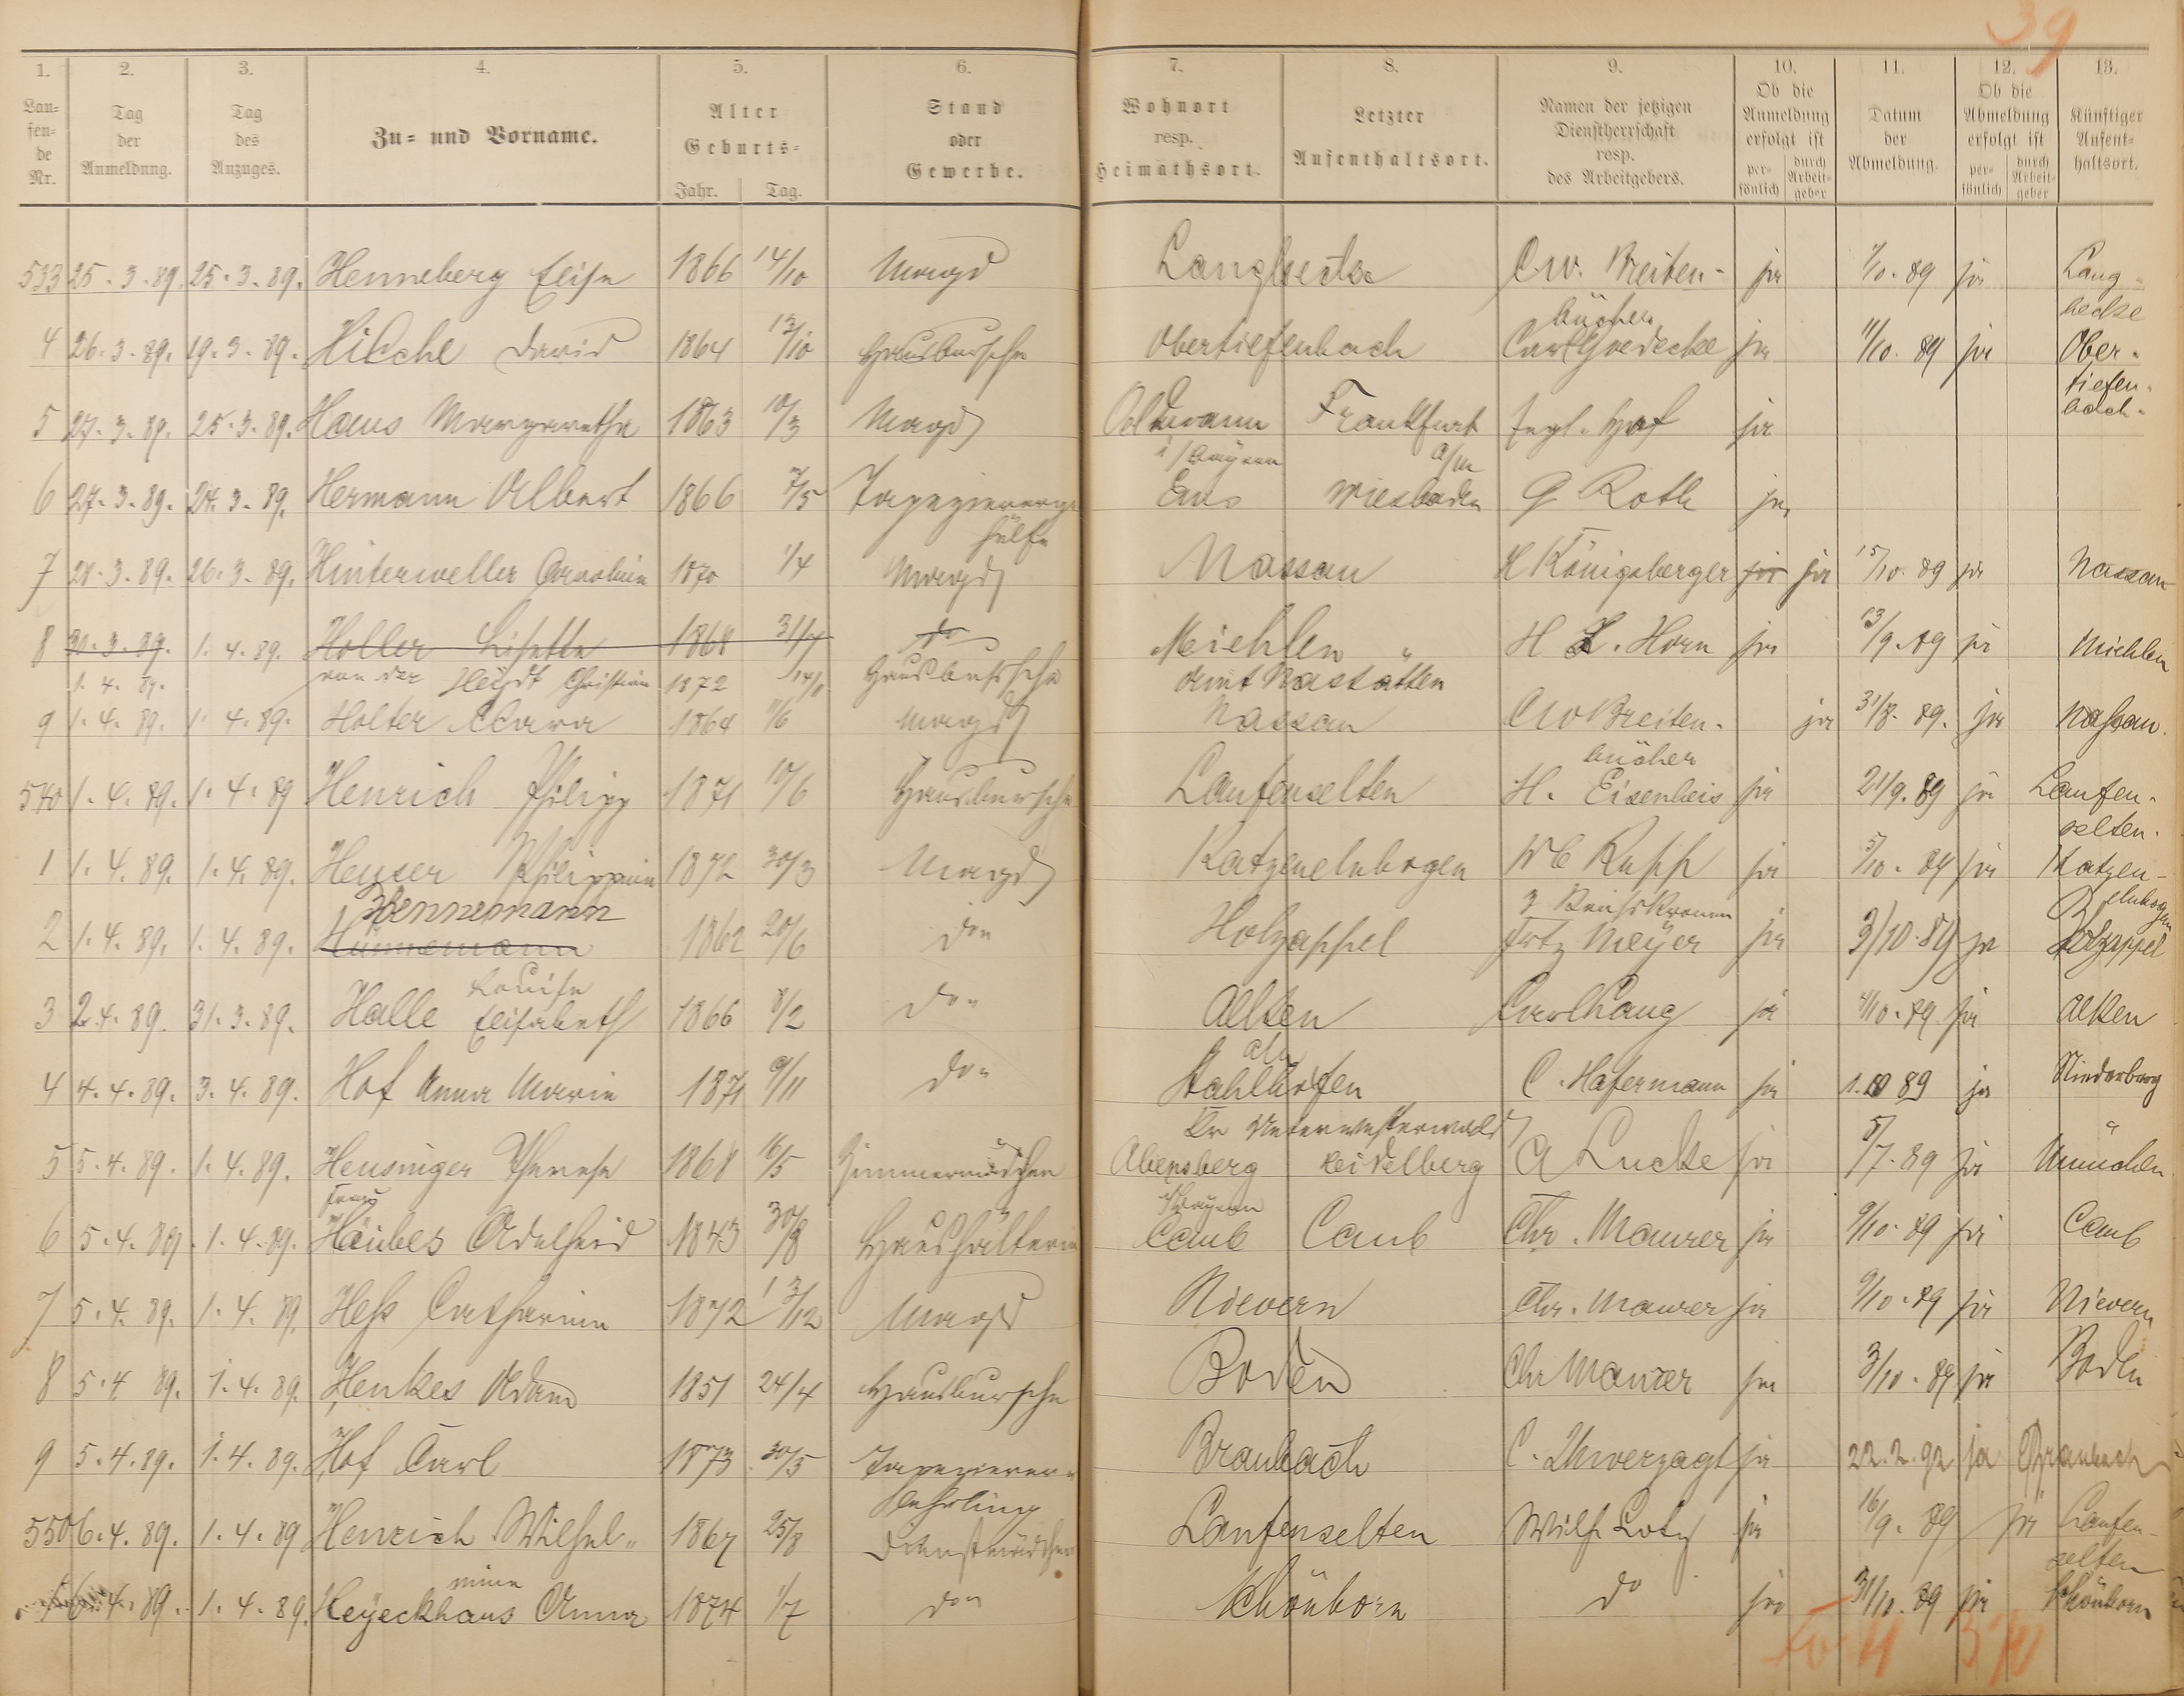 39
1. 2. 3. 4. 5. 6. 7. 8. 9. 10. 11. 12. 13.
Lau=fen=de Nr. Tag der Anmeldung. Tag des Anzuges. Zu= und Vorname. Alter Geburts= Jahr. Tag. Stand oder Gewerbe. Wohnort resp. Heimathsort. Letzter Aufenthaltsort. Namen der jetzigen Dienstherrschaft resp. des Arbeitgebers. Ob die Anmeldung erfolgt ist per=sönlich durch Arbeit=geber Datum der Abmeldung. Ob die Abmeldung erfolgt ist per=sönlich durch Arbeit=geber Künftiger Aufent=haltsort.
533 25.3.89. 25.3.89. Henneberg Elise 1866 14/10 Magd Langhecke CW. Breiten- ja 1/10.89 ja Lang-
bücher hecke
4 26.3.89. 19.3.89. Hilche David 1864 13/10 Hausbursche Obertiefenbach Carl Goedecke ja 11/10.89 ja Ober-
tiefen-
bach.
5 27.3.89. 25.3.89. Haus Margaretha 1863 10/3 Magd Frankfurt Engl. Hof ja
i/Bayern a/M
6 27.3.89. 24.3.89. Hermann Albert 1866 7/5 Tapezierer Ems Wiesbaden G Roth ja
hülfe
7 28.3.89. 26.3.89. Hinterweller Caroline 1870 1/4 Magd Nassau H Königsberger ja ja 15/10.89 ja Nassau
8 30.3.89. 1.4.89. Holler Lisette 1868 31/7 do Miehlen " H L. Horn ja 13/9.89 ja Miehlen
1.4.89. von der Heydt Christian 1872 14/11 Hausbursche Amt Nastätten
9 1.4.89. 1.4.89. Holter Clara 1864 11/6 Magd Nassau CW Breiten- ja 31/8.89. ja Nassau.
bücher
540 1.4.89. 1.4.89 Henrich Philipp 1871 10/6 Hausbursche Laufenselten H. Eisenbeis ja 21/9.89 ja Laufen-
selten.
1 1.4.89. 1.4.89. Heuser Philippine 1872 30/3 Magd Katzenelnbogen Wb Rupp ja 5/10.89 ja Katzen-
elnbogen
Hennemann z Reichskrone
2 1.4.89. 1.4.89. Hünnemann 1862 20/6 do Holzappel Fritz Meyer ja 3/10.89 ja Holzappel
Louise
3 2.4.89. 31.3.89. Halle Elisabeth 1866 8/2 do Carl Lang ja 4/10.89 ja
4 4.4.89. 3.4.89. Hof Anna Maria 1871 9/11 do Stahlhofen C. Hafermann ja 1.10 89 ja Niederberg
Kr Unterwesterwald
5 5.4.89. 1.4.89. Heusinger Therese 1868 16/5 Zimmermädchen Abensberg Heidelberg A Lucke ja 5/7.89 ja München.
Frau i/Bayern
6 5.4.89. 1.4.89. Häubes Adelheid 1843 30/8 Haushälterin Caub Caub Chr. Maurer ja 9/10.89 ja Caub
7 5.4.89. 1.4.89. Heß Catharine 1872 13/12 Magd Nievern Chr. Maurer ja 9/10.89 ja Nievern
8 5.4.89. 1.4.89. Henkes Adam 1851 24/4 Hausbursche Boden Chr Maurer ja 3/10.89 ja Boden
9 5.4.89. 1.4.89. Hof Carl 1873 30/5 Tapezierer- Braubach C. Unverzagt ja 22.2.92 ja Braubach
Lehrling
550 6.4.89. 1.4.89 Henrich Wilhel- 1867 25/8 Dienstmädchen Laufenselten Wilh. Lotz ja 16/9.89 ja Laufen-
mine selten
6.4.89. 1.4.89. Heyeckhaus Anna 1874 1/7 do Schönborn do ja 31/10.89 ja Schönborn